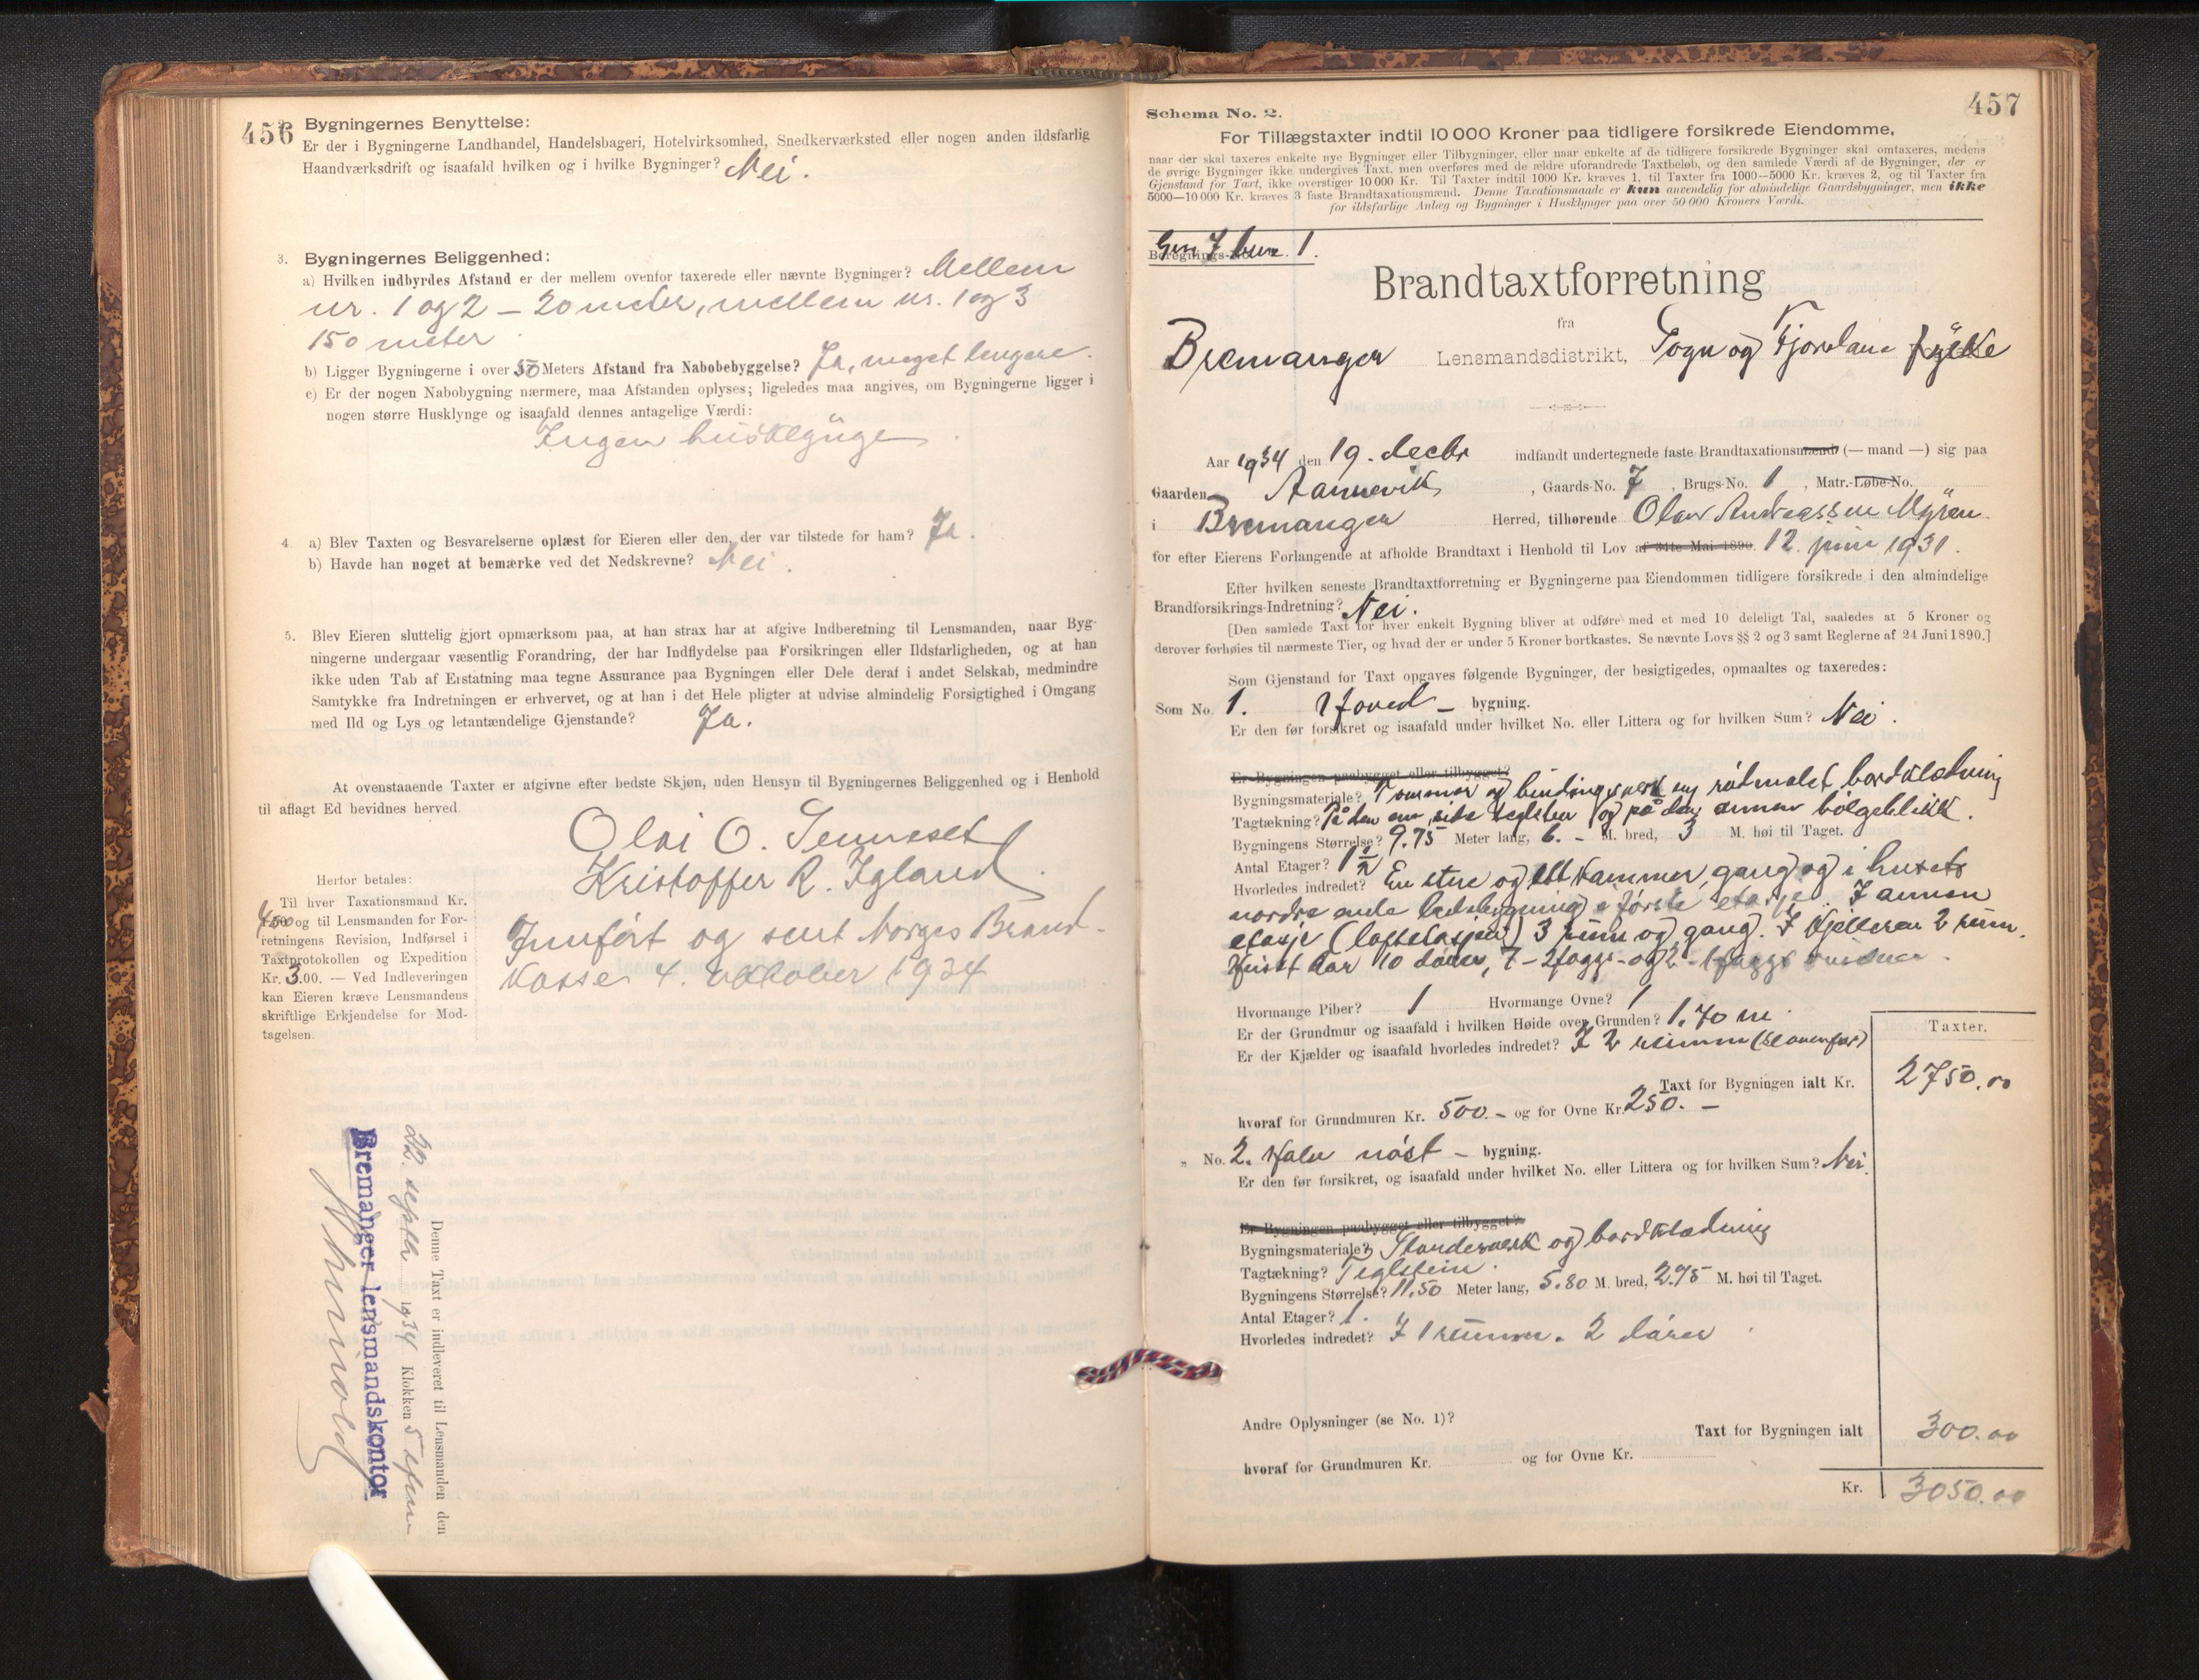 456
Bygningernes Benyttelse:
Er der i Bygningerne Landhandel, Handelsbageri, Hotelvirksomhed, Snedkerværksted eller nogen anden ildsfarlig
Haandværksdrift og isaafald hvilken og i hvilke Bygninger? Nei.
3. Bygningernes Beliggenhed:
a) Hvilken indbyrdes Afstand er der mellem ovenfor taxerede eller nævnte Bygninger? Mellem
nr. 1 og 2 – 20 meter, mellem nr. 1 og 3
150 meter
b) Ligger Bygningerne i over 50 Meters Afstand fra Nabobebyggelse? Ja, meget lengere.
c) Er der nogen Nabobygning nærmere, maa Afstanden oplyses; ligeledes maa angives, om Bygningerne ligger i
nogen større Husklynge og isaafald dennes antagelige Værdi:
Ingen husklynge.
4. a) Blev Taxten og Besvarelserne oplæst for Eieren eller den, der var tilstede for ham? Ja.
b) Havde han noget at bemærke ved det Nedskrevne? Nei.
5. Blev Eieren sluttelig gjort opmærksom paa, at han strax har at afgive Indberetning til Lensmanden, naar Byg-
ningerne undergaar væsentlig Forandring, der har Indflydelse paa Forsikringen eller Ildsfarligheden, og at han
ikke uden Tab af Erstatning maa tegne Assurance paa Bygningen eller Dele deraf i andet Selskab, medmindre
Samtykke fra Indretningen er erhvervet, og at han i det Hele pligter at udvise almindelig Forsigtighed i Omgang
med Ild og Lys og letantændelige Gjenstande? Ja.
At ovenstaaende Taxter er afgivne efter bedste Skjøn, uden Hensyn til Bygningernes Beliggenhed og i Henhold
til aflagt Ed bevidnes herved.
Olai O. Senneset
Kristoffer R. Igland.
Innført og sent Norges Brand-
kasse 4. oktober 1934
Herfor betales:
Til hver Taxationsmand Kr.
4.00 og til Lensmanden for For-
retningens Revision, Indførsel i
Taxtprotokollen og Expedition
Kr. 3.00. — Ved Indleveringen
kan Eieren kræve Lensmandens
skriftlige Erkjendelse for Mod-
tagelsen.
Denne Taxt er indleveret til Lensmanden den
22. septbr 1934 Klokken 5 eftm
Bremanger lensmandskontor
457
Schema No. 2.
For Tillægstaxter indtil 10 000 Kroner paa tidligere forsikrede Eiendomme,
naar der skal taxeres enkelte nye Bygninger eller Tilbygninger, eller naar enkelte af de tidligere forsikrede Bygninger skal omtaxeres, medens
de øvrige Bygninger ikke undergives Taxt, men overføres med de ældre uforandrede Taxtbeløb, og den samlede Værdi af de Bygninger, der er
Gjenstand for Taxt, ikke overstiger 10 000 Kr. Til Taxter indtil 1000 Kr. kræves 1, til Taxter fra 1000—5000 Kr. kræves 2, og til Taxter fra
5000—10 000 Kr. kræves 3 faste Brandtaxationsmænd. Denne Taxationsmaade er kun anvendelig for almindelige Gaardsbygninger, men ikke
for ildsfarlige Anlæg og Bygninger i Husklynger paa over 50 000 Kroners Værdi.
Gnr 7 bnr. 1.
Beregnings-
Brandtaxtforretning
fra
Bremanger Lensmandsdistrikt, Sogn og Fjordane fylke
Aar 1934 den 19. decbr indfandt undertegnede faste Brandtaxationsmænd (— mand —) sig paa
Gaarden Aannevik, Gaards-No. 7, Brugs-No. 1, Matr.-Løbe-No.
i Bremanger Herred, tilhørende Olav Andreassen Myren
for efter Eierens Forlangende at afholde Brandtaxt i Henhold til Lov af 31te Mai 1890. 12. juni 1931.
Efter hvilken seneste Brandtaxtforretning er Bygningerne paa Eiendommen tidligere forsikrede i den almindelige
Brandforsikrings-Indretning? Nei.
[Den samlede Taxt for hver enkelt Bygning bliver at udføre med et med 10 deleligt Tal, saaledes at 5 Kroner og
derover forhøies til nærmeste Tier, og hvad der er under 5 Kroner bortkastes. Se nævnte Lovs §§ 2 og 3 samt Reglerne af 24 Juni 1890.]
Som Gjenstand for Taxt opgaves følgende Bygninger, der besigtigedes, opmaaltes og taxeredes:
Som No. 1. Hoved – bygning.
Er den før forsikret og isaafald under hvilket No. eller Littera og for hvilken Sum? Nei.
Er Bygningen paabygget eller tilbygget?
Bygningsmateriale? Tømmer og bindingsverk og rødmalet bordklædning
Tagtækning? På den ene side teglsten og på den annen bølgeblikk.
Bygningens Størrelse? 9.75 Meter lang, 6. – M. bred, 3 M. høi til Taget.
Antal Etager? 1 ½
Hvorledes indredet? En stue og ett kammer, gang og i husets
nordre ende ladebygning i første etasje. I annen
etasje (loftetasjen) 3 rum og gang. I kjelleren 2 rum.
Huset har 10 dører, 7 – 2faggs- og 2 – 1faggs vinduer.
Hvormange Piber? 1 Hvormange Ovne? 1
Er der Grundmur og isaafald i hvilken Høide over Grunden? 1.70 m.
Er der Kjælder og isaafald hvorledes indredet? I 2 rumm (se ovenfor)
Taxter.
Taxt for Bygningen ialt Kr. 2750.00
hvoraf for Grundmuren Kr. 500. – og for Ovne Kr. 250. –
„ No. 2. Halv nøst – bygning.
Er den før forsikret, og isaafald under hvilket No. eller Littera og for hvilken Sum? Nei.
Er Bygningen paabygget eller tilbygget?
Bygningsmateriale? Standerverk og bordklædning
Tagtækning? Teglstein.
Bygningens Størrelse? 11.50 Meter lang, 5.80 M. bred, 2.75 M. høi til Taget.
Antal Etager? 1.
Hvorledes indredet? I 1 rumm. 2 dører
Andre Oplysninger (se No. 1)?
Taxt for Bygningen ialt 300.00
hvoraf for Grundmuren Kr. og for Ovne Kr.
Kr. 3050.00